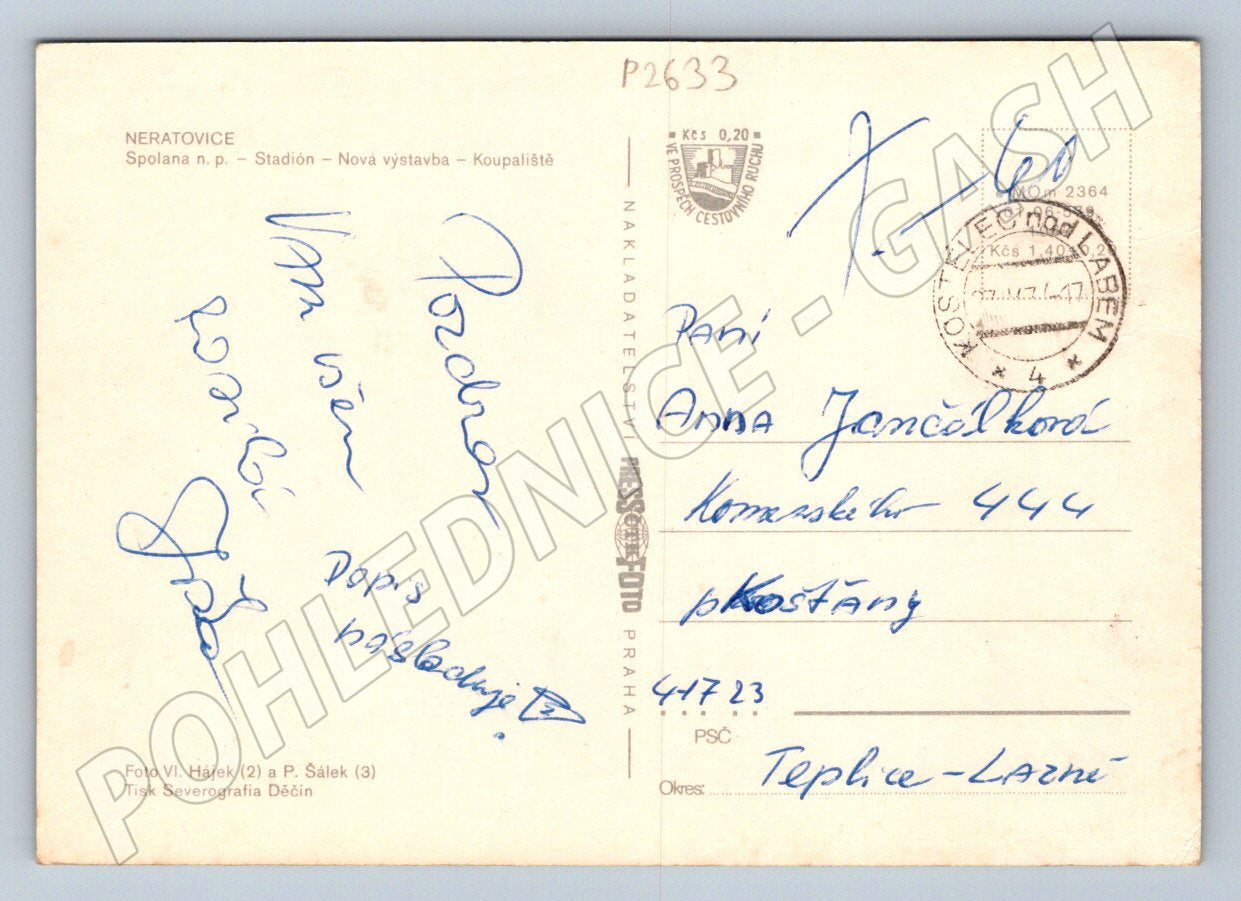 P2633
NERATOVICE
Spolana n. p. – Stadión – Nová výstavba – Koupaliště
Pozdrav
Vám všem
posílá
Dopis
následuje
Foto Vl. Hájek (2) a P. Šálek (3)
Tisk Severografia Děčín
NAKLADATELSTVÍ PRESSFOTO PRAHA
Kčs 0,20
VE PROSPĚCH CESTOVNÍHO RUCHU
MOm 2364
Kčs 1,40
KOSTELEC nad LABEM
4
Paní
Anna Jančálková
Komenského 444
p Košťany
417 23
PSČ
Okres: Teplice-Lázně
POHLEDNICE - GASH